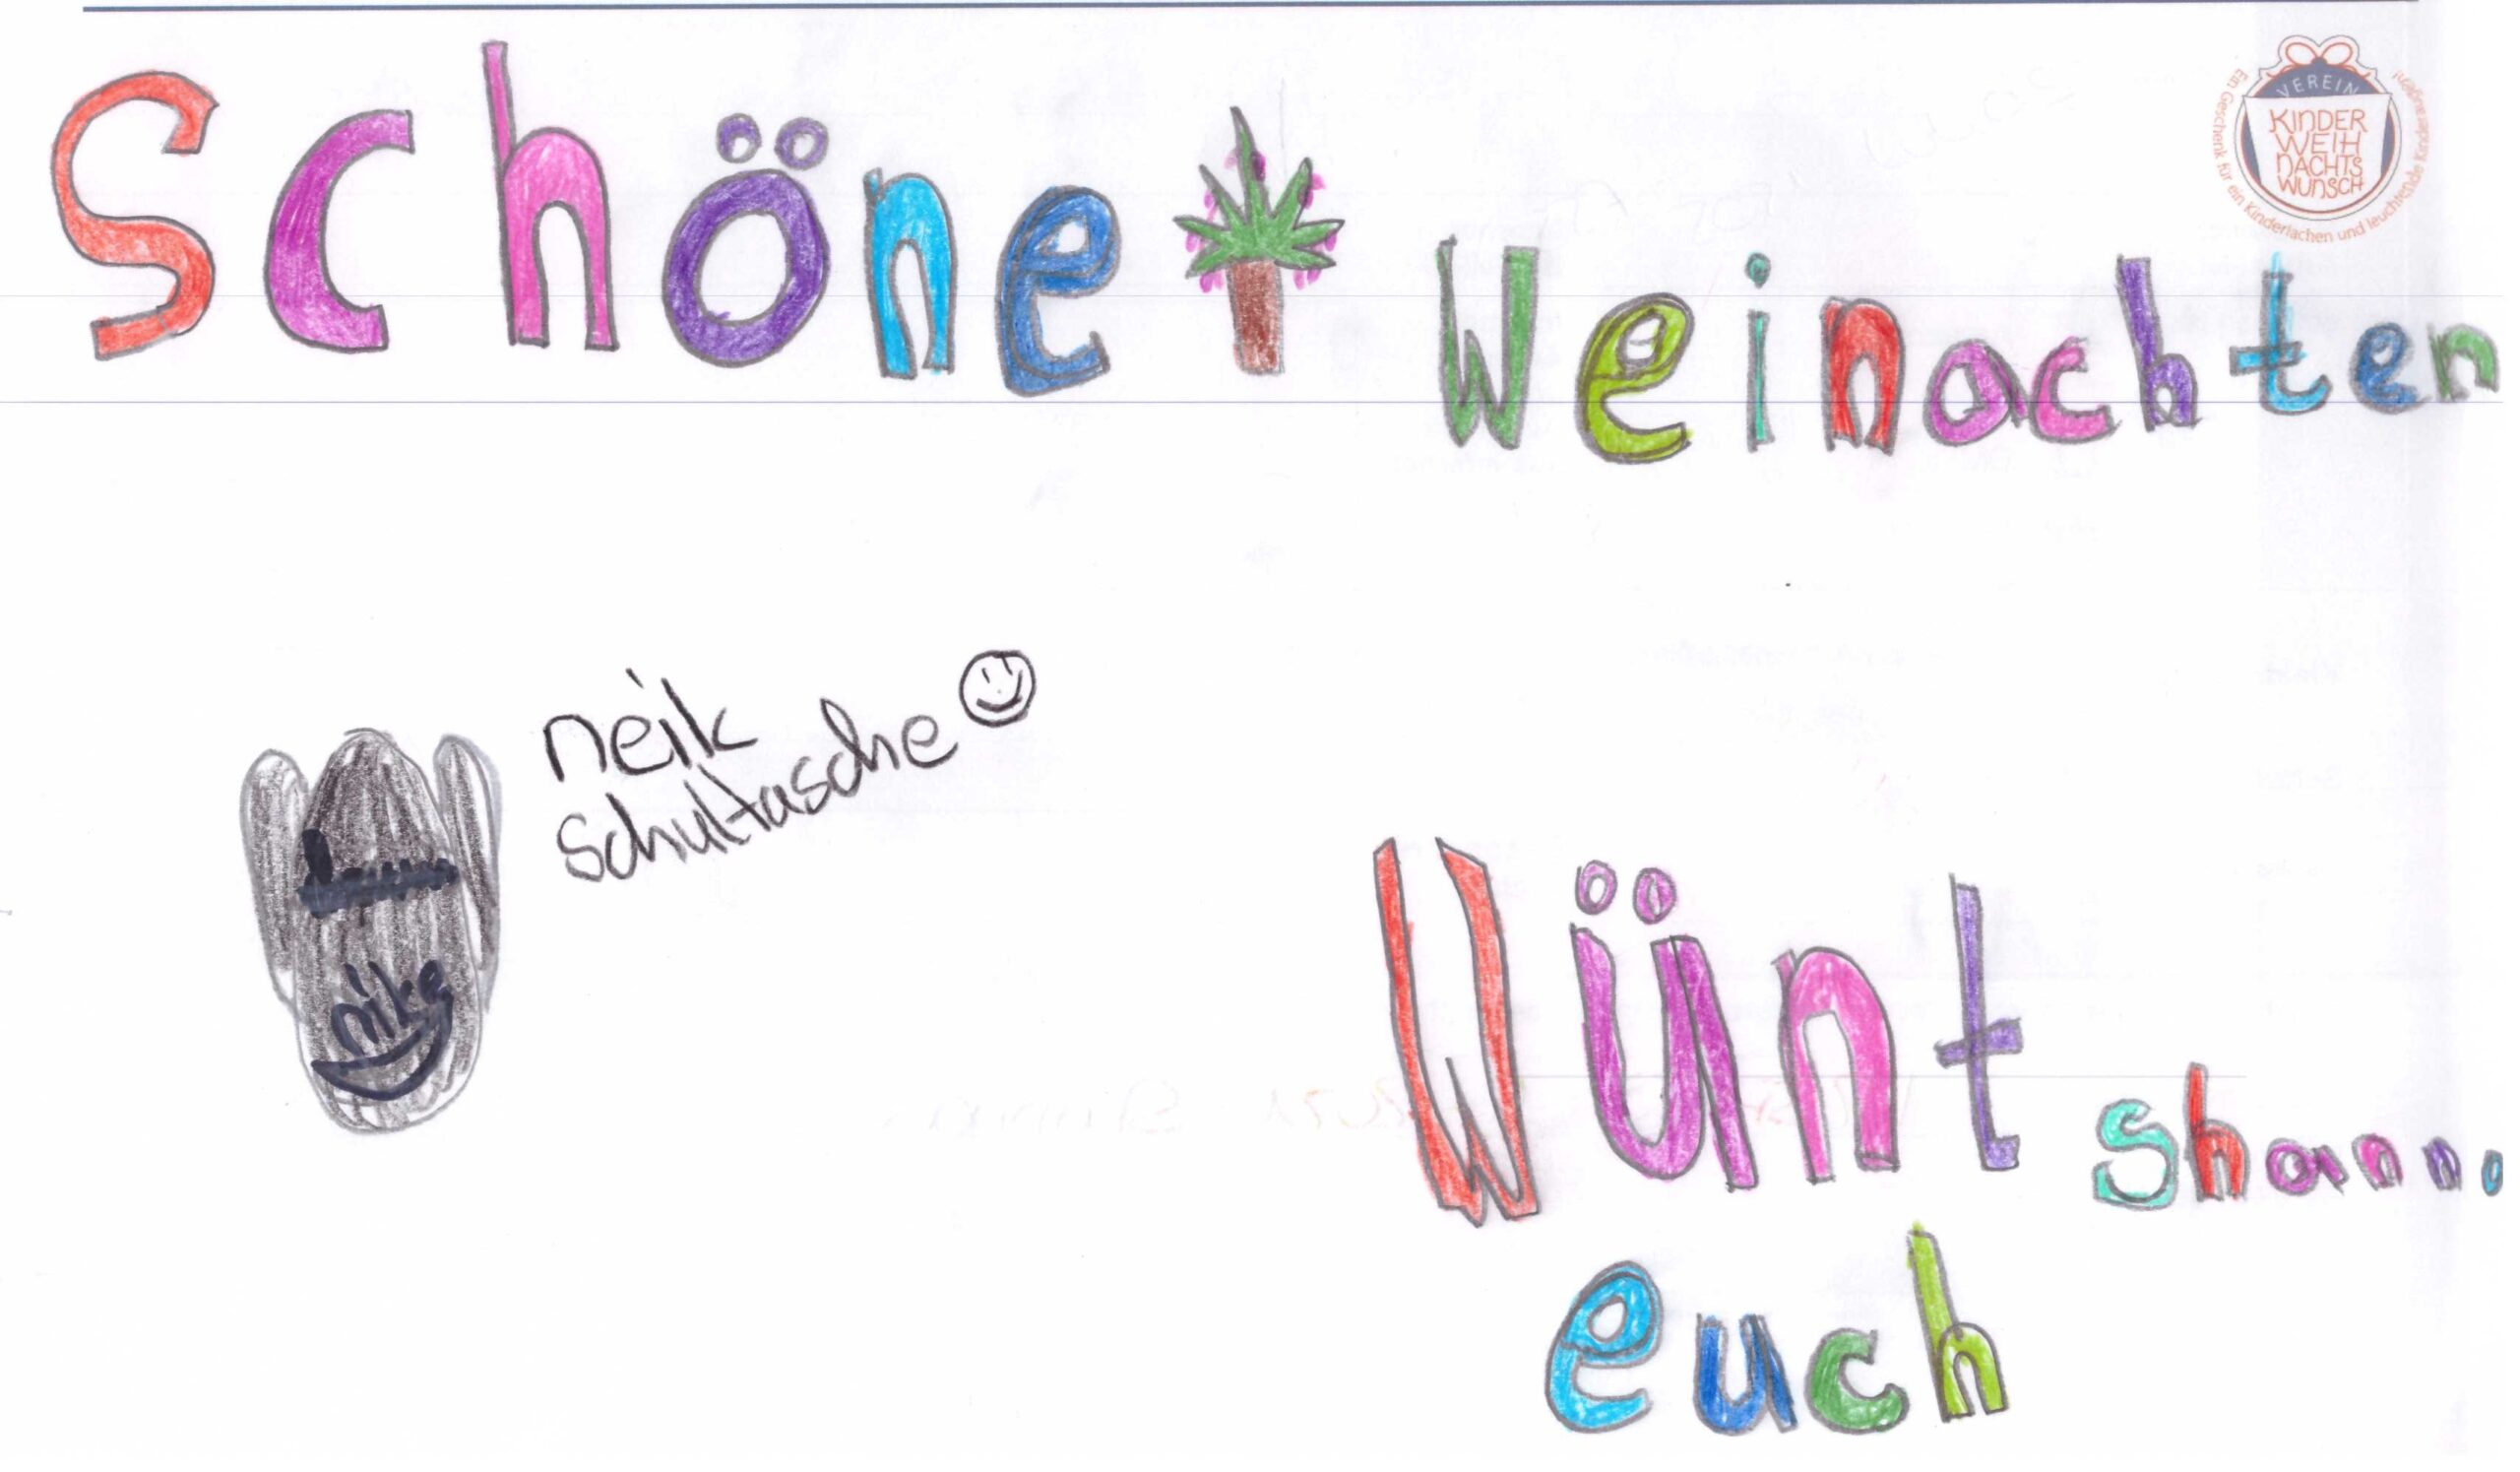 Schöne Weinachten
VEREIN
KINDER
WEIH
NACHTS
WUNSCH
Ein Geschenk für ein Kinderlachen und leuchtende Kinderaugen!
neik
schultasche
nike
Wünt
euch